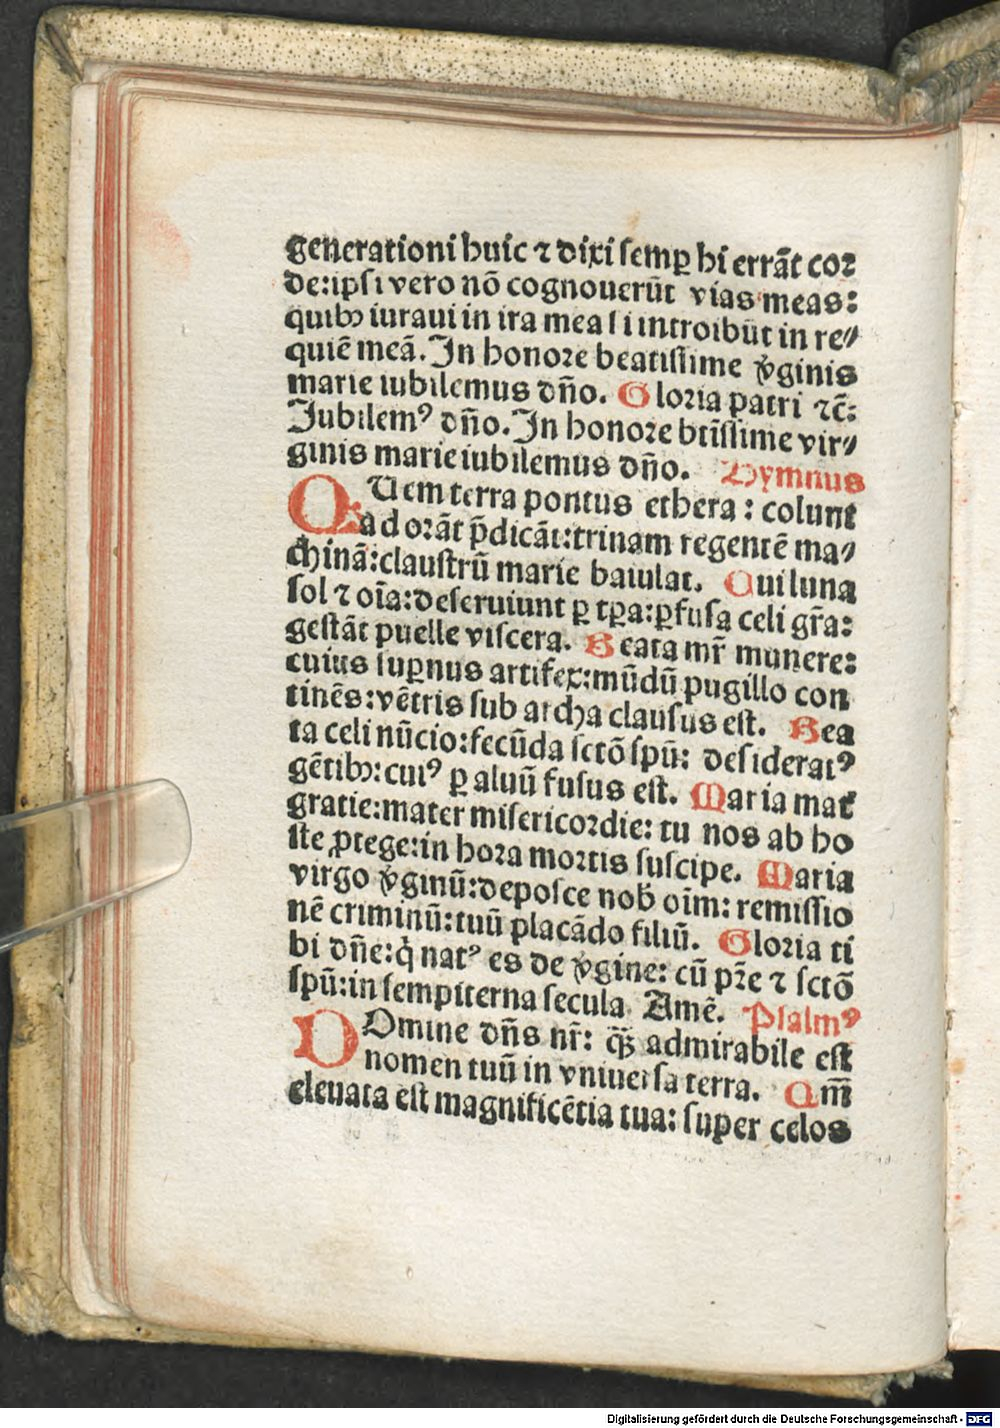 generationi huic ⁊ dixi semꝑ hi errāt cor
de:ipsi vero nō cognouerūt vias meas:
quibꝫ iuraui in ira mea si introibūt in re⸗
quiē meā. In honore beatissime v̓ginis
marie iubilemus dn̄o. Gloria patri ⁊c̄.
Jubilemꝰ dn̄o. In honore btissime vir⸗
ginis marie iubilemus dn̄o. Hymnus
QUem terra pontus ethera: colunt
adorāt p̄dicāt:trinam regentē ma⸗
chinā:claustrū marie baiulat. Cui luna
sol ⁊ oīa:deseruiunt ꝑ tꝑa:ꝑfusa celi gr̄a:
gestāt puelle viscera. Beata mr̄ munere:
cuius suꝑnus artifex:mūdū pugillo con
tinēs:vētris sub archa clausus est. Bea
ta celi nūcio:fecūda sctō spū: desideratꝰ
gētibꝫ:cuiꝰ ꝑ aluū fusus est. Maria mat̄
gratie:mater misericordie: tu nos ab ho
ste ꝓtege:in hora mortis suscipe. Maria
virgo v̓ginū:deposce nob̄ oīm: remissio
nē criminū:tuū placādo filiū. Gloria ti
bi dn̄e:q̇ natꝰ es de v̓gine: cū pr̄e ⁊ sctō
spū:in sempiterna secula Amē. Psalmꝰ
DOmine dn̄s nr̄: qꝫ̄ admirabile est
nomen tuū in vniuersa terra. Qm̄
eleuata est magnificētia tua: super celos
Digitalisierung gefördert durch die Deutsche Forschungsgemeinschaft - DFG